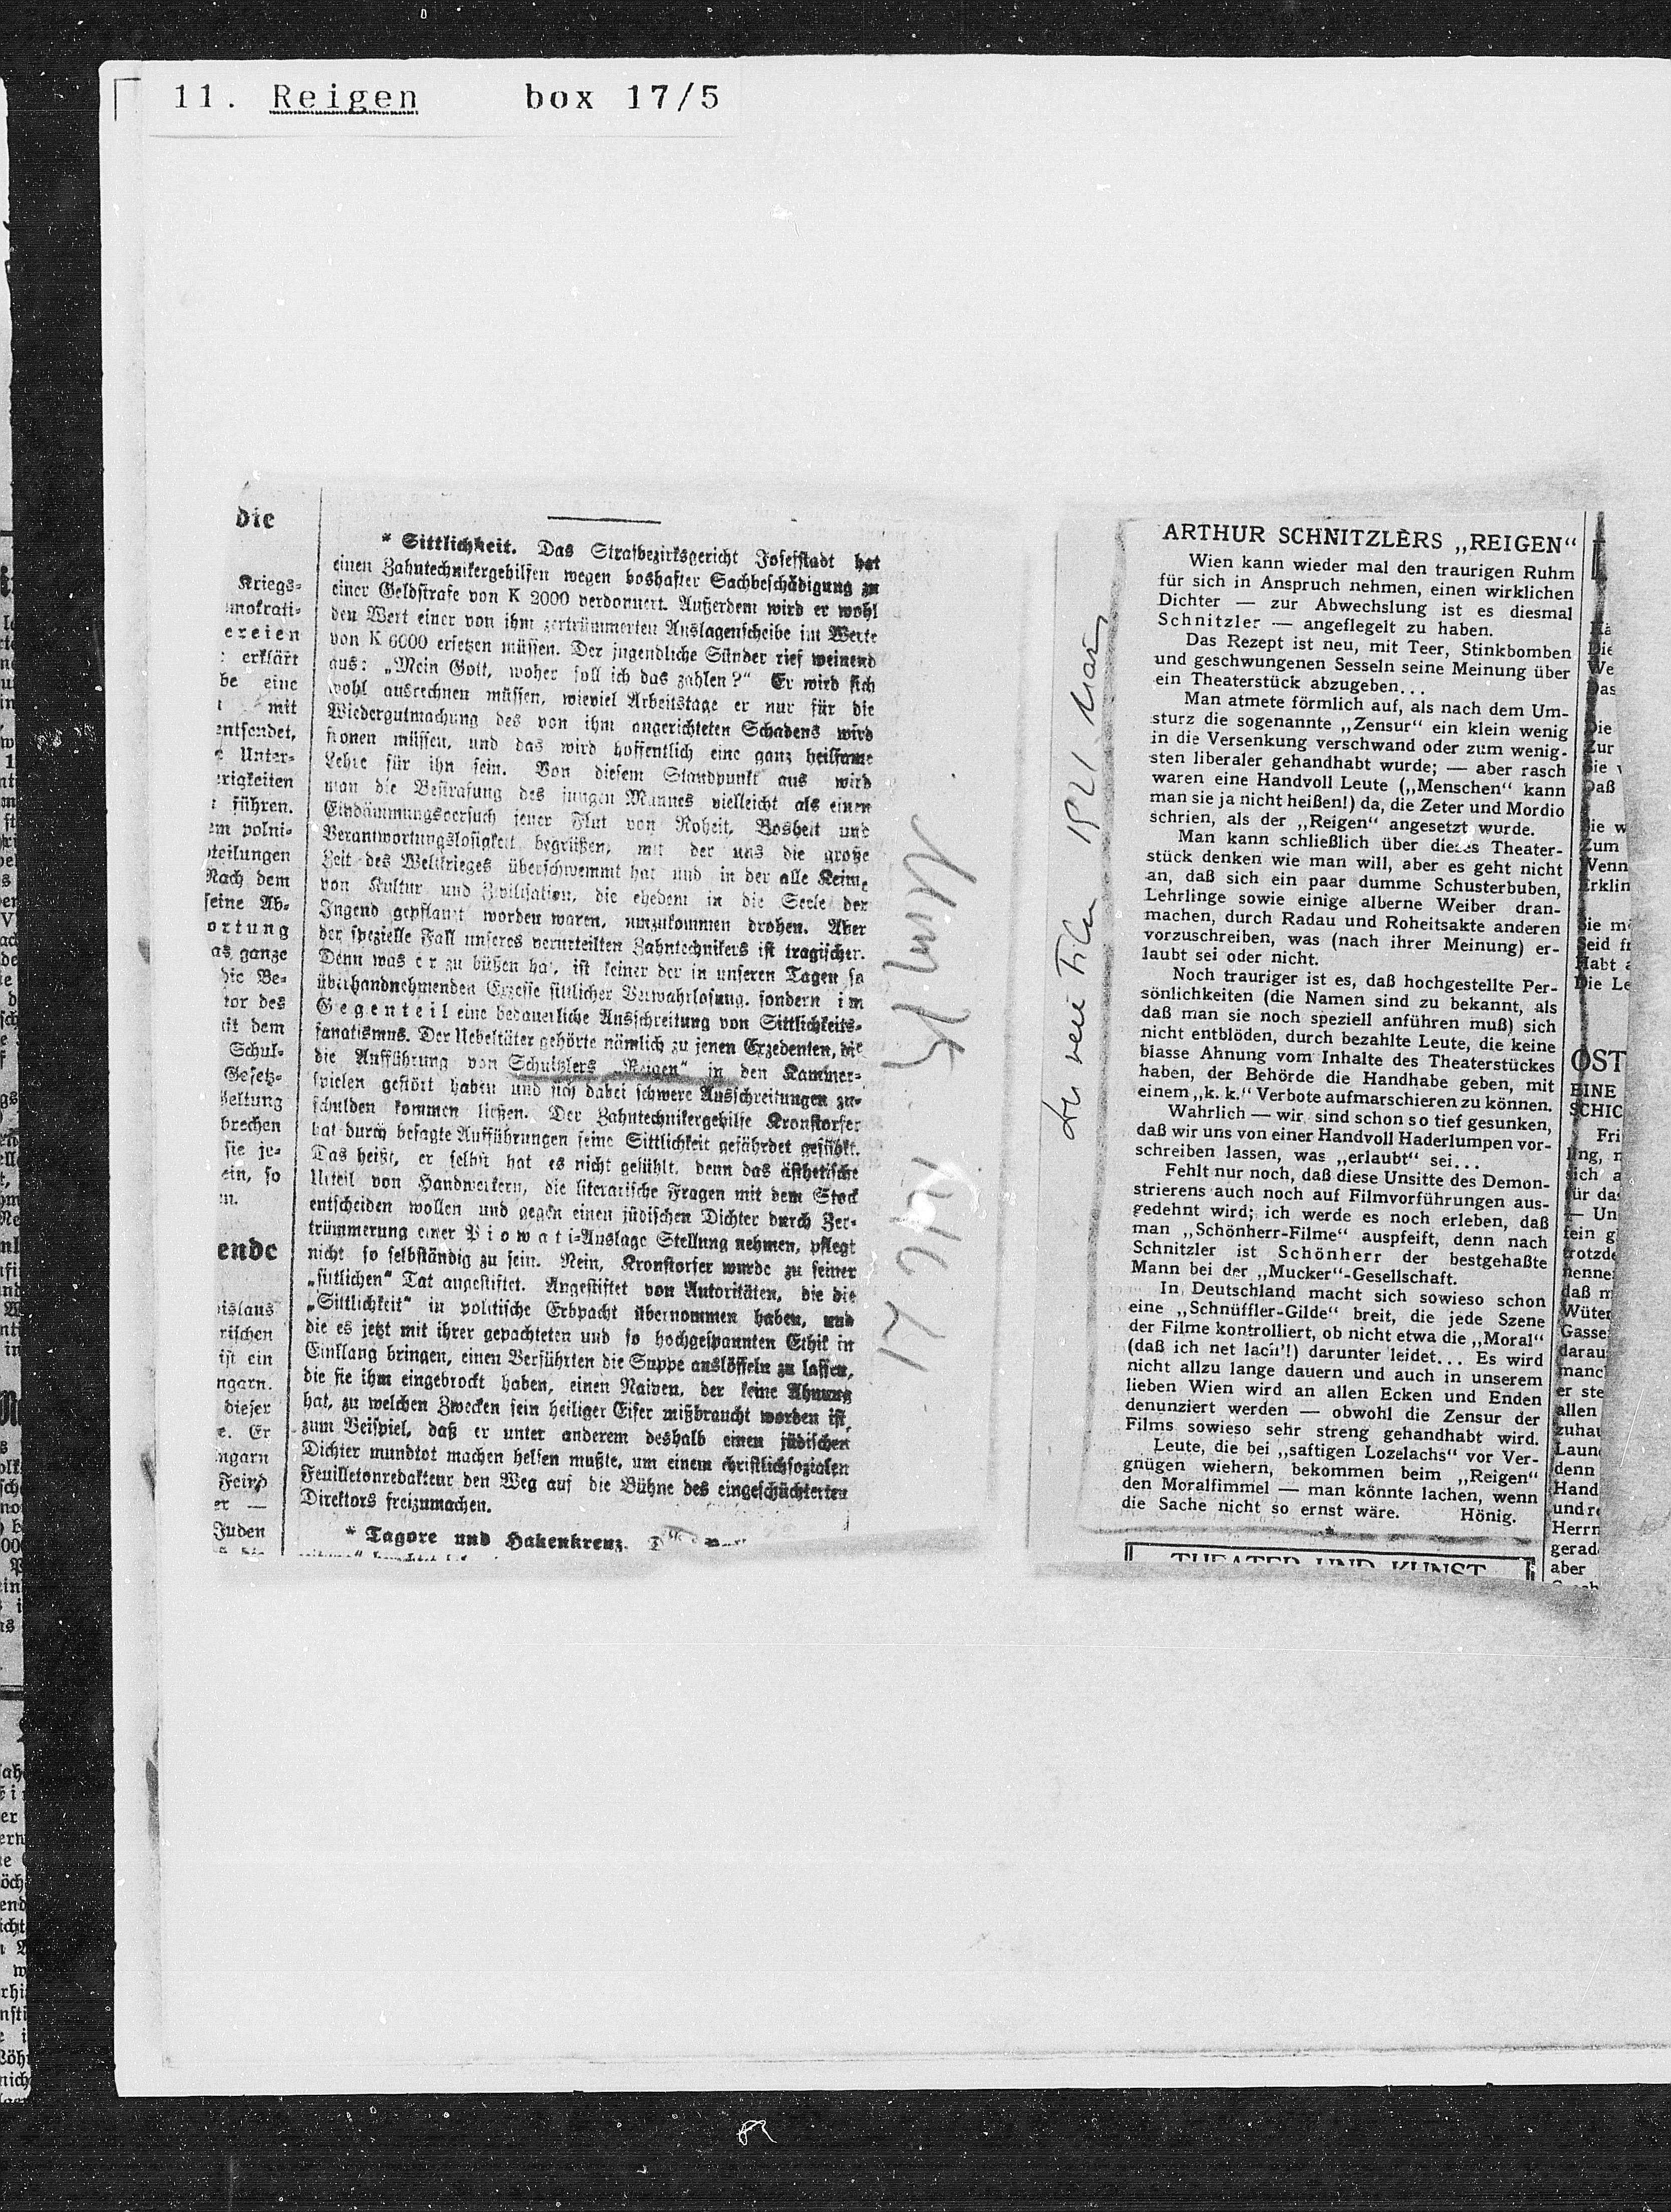 11. Reigen box 17/5
die
Kriegs-
mokrati-
ereien
erklärt
be eine
mit
entsendet,
Unter-
erigkeiten
führen.
em polni-
bteilungen
Nach dem
seine Ab-
ortung
as ganze
die Be-
tor des
mit dem
Schul-
Gesetz-
Geltung
brechen
sie je-
ein, so
ende
rischen
ist ein
ngarn.
dieser
e. Er
ngarn
Feind
er —
Juden
* Sittlichkeit. Das Strafbezirksgericht Josefstadt hat
einen Zahntechnikergehilfen wegen boshafter Sachbeschädigung zu
einer Geldstrafe von K 2000 verdonnert. Außerdem wird er wohl
den Wert einer von ihm zertrümmerten Auslagenscheibe im Werte
von K 6000 ersetzen müssen. Der jugendliche Sünder rief weinend
aus: „Mein Gott, woher soll ich das zahlen?“ Er wird sich
wohl ausrechnen müssen, wieviel Arbeitstage er nur für die
Wiedergutmachung des von ihm angerichteten Schadens wird
fronen müssen, und das wird hoffentlich eine ganz heilsame
Lehre für ihn sein. Von diesem Standpunkt aus wird
man die Bestrafung des jungen Mannes vielleicht als einen
Eindämmungsversuch jener Flut von Roheit, Bosheit und
Verantwortungslosigkeit begrüßen, mit der uns die große
Zeit des Weltkrieges überschwemmt hat und in der alle Keime
von Kultur und Zivilisation, die ehedem in die Seele der
Jugend gepflanzt worden waren, umzukommen drohen. Aber
der spezielle Fall unseres verurteilten Zahntechnikers ist tragischer.
Denn was er zu büßen hat, ist keiner der in unseren Tagen so
überhandnehmenden Exzesse sittlicher Verwahrlosung, sondern im
Gegenteil eine bedauerliche Ausschreitung von Sittlichkeits-
fanatismus. Der Uebeltäter gehörte nämlich zu jenen Exzedenten, die
die Aufführung von Schnitzlers „Reigen“ in den Kammer-
spielen gestört haben und sich dabei schwere Ausschreitungen zu-
schulden kommen ließen. Der Zahntechnikergehilfe Kronstorfer
hat durch besagte Aufführungen seine Sittlichkeit gefährdet gefühlt.
Das heißt, er selbst hat es nicht gefühlt, denn das ästhetische
Urteil von Handwerkern, die literarische Fragen mit dem Stock
entscheiden wollen und gegen einen jüdischen Dichter durch Zer-
trümmerung einer Piowati-Auslage Stellung nehmen, pflegt
nicht so selbständig zu sein. Nein, Kronstorfer wurde zu seiner
„sittlichen“ Tat angestiftet. Angestiftet von Autoritäten, die die
„Sittlichkeit“ in politische Erbpacht übernommen haben, und
die es jetzt mit ihrer gepachteten und so hochgespannten Ethik in
Einklang bringen, einen Verführten die Suppe auslöffeln zu lassen,
die sie ihm eingebrockt haben, einen Naiven, der keine Ahnung
hat, zu welchen Zwecken sein heiliger Eifer mißbraucht worden ist,
zum Beispiel, daß er unter anderem deshalb einen jüdischen
Dichter mundtot machen helfen mußte, um einem christlichsozialen
Feuilletonredakteur den Weg auf die Bühne des eingeschüchterten
Direktors freizumachen.
* Tagore und Hakenkreuz.
1921
ARTHUR SCHNITZLERS „REIGEN“
Wien kann wieder mal den traurigen Ruhm
für sich in Anspruch nehmen, einen wirklichen
Dichter — zur Abwechslung ist es diesmal
Schnitzler — angeflegelt zu haben.
Das Rezept ist neu, mit Teer, Stinkbomben
und geschwungenen Sesseln seine Meinung über
ein Theaterstück abzugeben...
Man atmete förmlich auf, als nach dem Um-
sturz die sogenannte „Zensur“ ein klein wenig
in die Versenkung verschwand oder zum wenig-
sten liberaler gehandhabt wurde; — aber rasch
waren eine Handvoll Leute („Menschen“ kann
man sie ja nicht heißen!) da, die Zeter und Mordio
schrien, als der „Reigen“ angesetzt wurde.
Man kann schließlich über dieses Theater-
stück denken wie man will, aber es geht nicht
an, daß sich ein paar dumme Schusterbuben,
Lehrlinge sowie einige alberne Weiber dran-
machen, durch Radau und Roheitsakte anderen
vorzuschreiben, was (nach ihrer Meinung) er-
laubt sei oder nicht.
Noch trauriger ist es, daß hochgestellte Per-
sönlichkeiten (die Namen sind zu bekannt, als
daß man sie noch speziell anführen muß) sich
nicht entblöden, durch bezahlte Leute, die keine
blasse Ahnung vom Inhalte des Theaterstückes
haben, der Behörde die Handhabe geben, mit
einem „k. k.“ Verbote aufmarschieren zu können.
Wahrlich — wir sind schon so tief gesunken,
daß wir uns von einer Handvoll Haderlumpen vor-
schreiben lassen, was „erlaubt“ sei...
Fehlt nur noch, daß diese Unsitte des Demon-
strierens auch noch auf Filmvorführungen aus-
gedehnt wird; ich werde es noch erleben, daß
man „Schönherr-Filme“ auspfeift, denn nach
Schnitzler ist Schönherr der bestgehaßte
Mann bei der „Mucker“-Gesellschaft.
In Deutschland macht sich sowieso schon
eine „Schnüffler-Gilde“ breit, die jede Szene
der Filme kontrolliert, ob nicht etwa die „Moral“
(daß ich net lach'!) darunter leidet... Es wird
nicht allzu lange dauern und auch in unserem
lieben Wien wird an allen Ecken und Enden
denunziert werden — obwohl die Zensur der
Films sowieso sehr streng gehandhabt wird.
Leute, die bei „saftigen Lozelachs“ vor Ver-
gnügen wiehern, bekommen beim „Reigen“
den Moralfimmel — man könnte lachen, wenn
die Sache nicht so ernst wäre. Hönig.
THEATER UND KUNST
Die
Zur
Daß
Zum
Wenn
OST
EINE
SCHIC
Fri